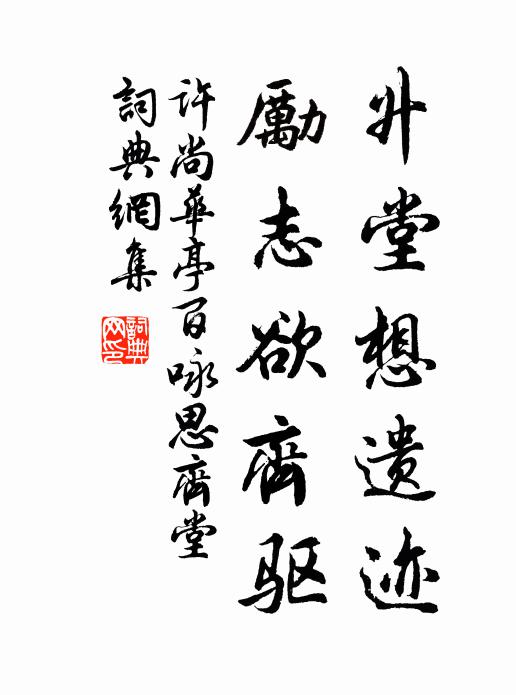 升堂想遗迹
勵志欲齊驱
许尚華亭百咏思齊堂
詞典網集
詞典网印